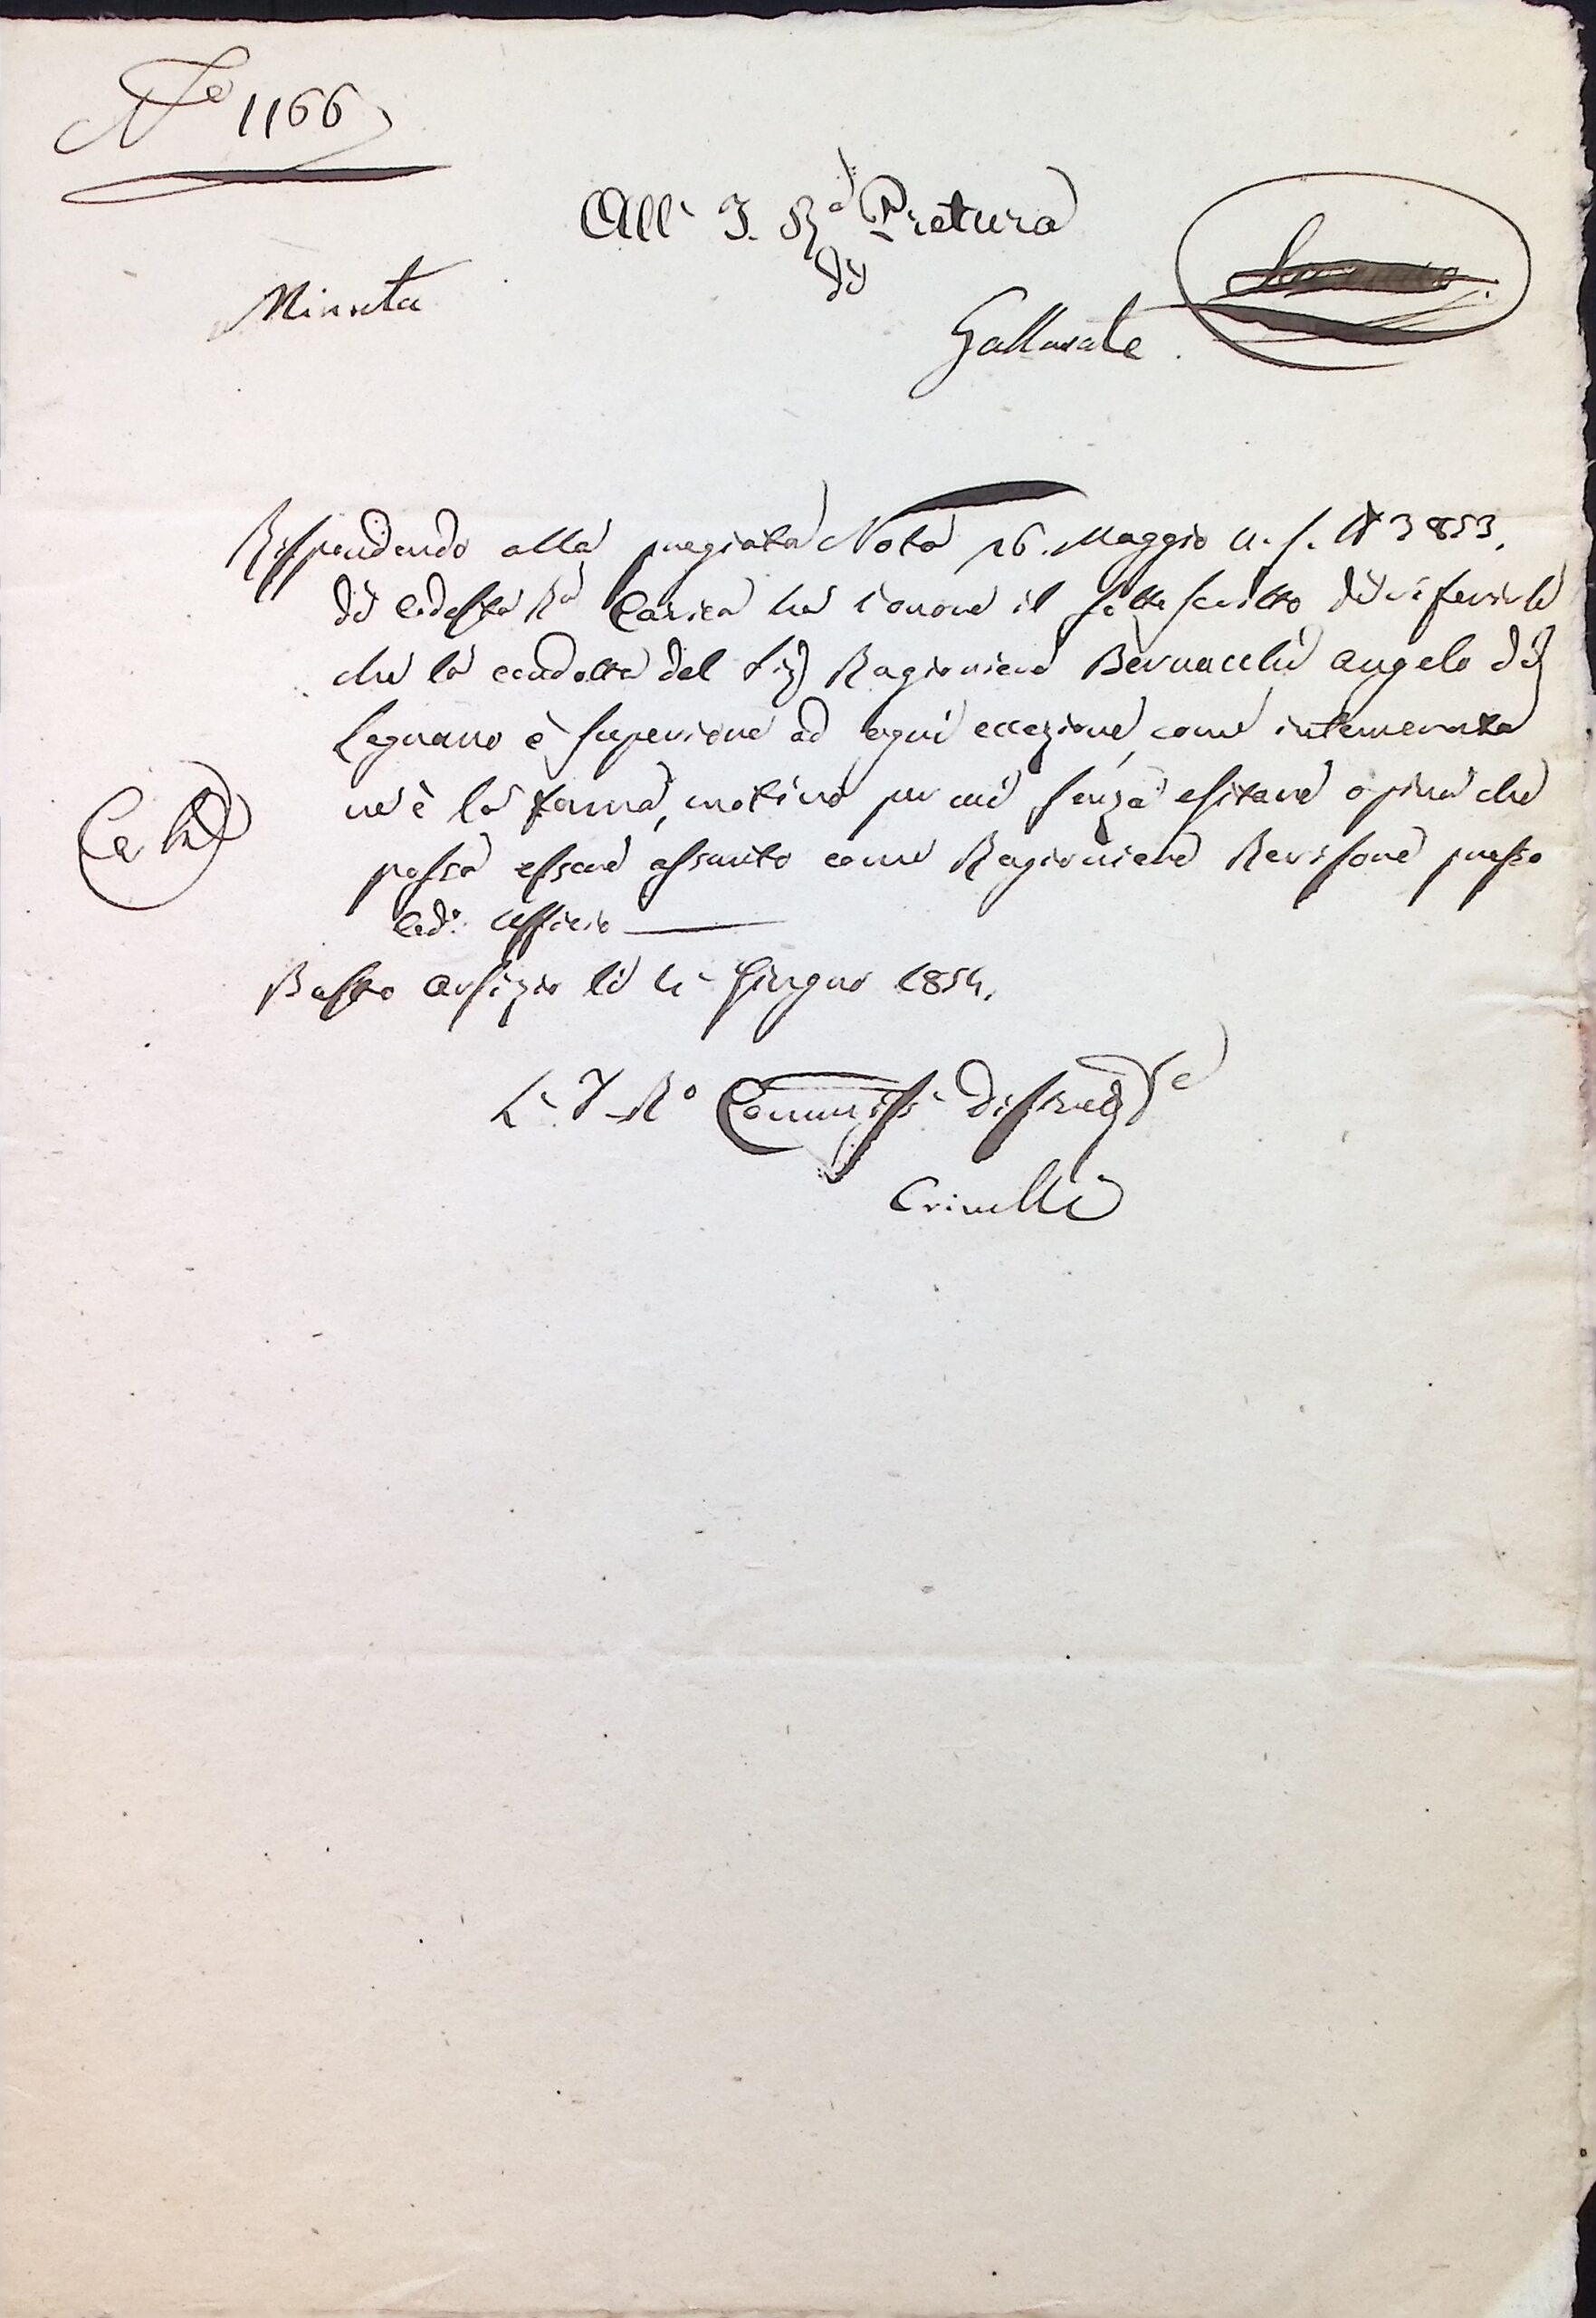 N.º 1166
All' I. R.ª Pretura
di
Minuta
Gallarate.
Rispondendo alla pregiata Nota 26. Maggio N.º 3853.
di codesta R.ª Carica ha l'onore il sottoscritto di riferirle
che la condotta del Sig. Ragioniere Bernacchi Angelo di
Legnano è superiore ad ogni eccezione, come intemerata
ne è la fama, motivo per cui senza esitare opina che
possa essere assunto come Ragioniere Revisore presso
cod.º Ufficio
Busto Arsizio li 4 Giugno 1854.
L' I. R.º Commiss.º Distrett.e
Crivelli